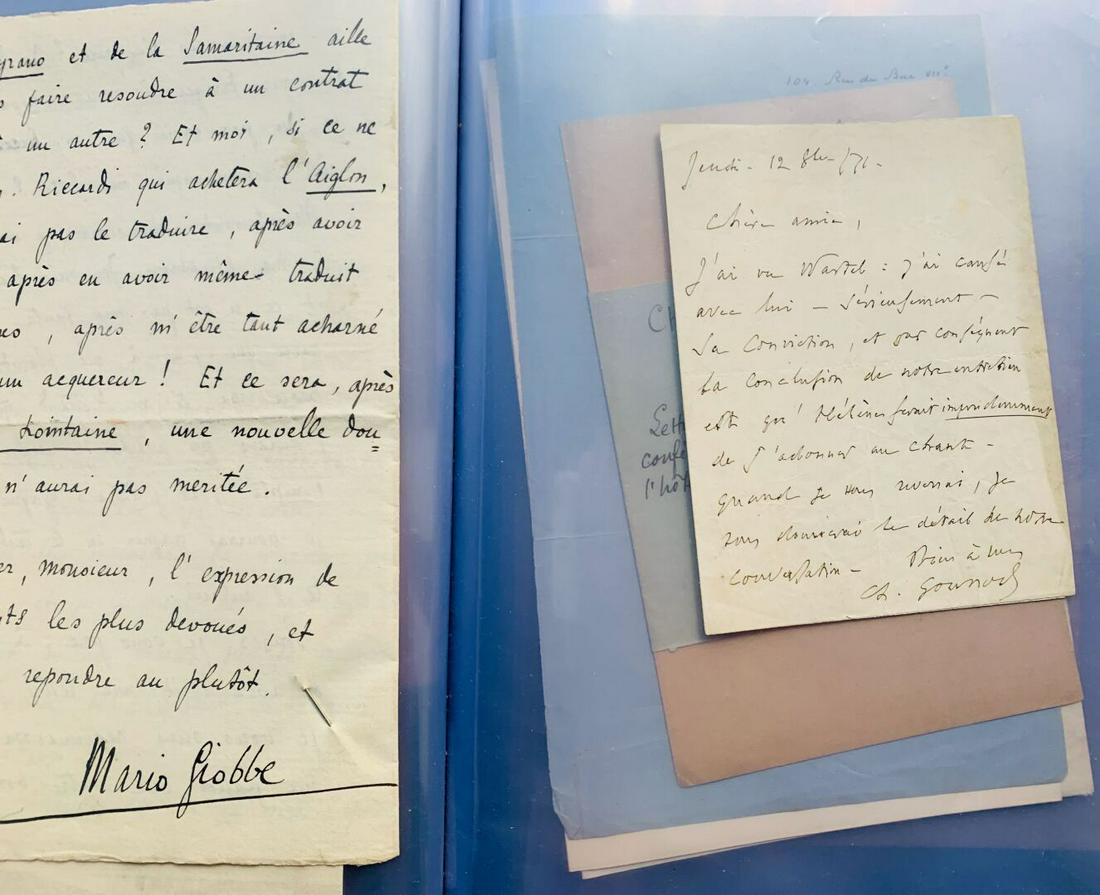 et de la Samaritaine aille
faire resoudre à un contrat
un autre ? Et moi, si ce ne
. Riccardi qui achetera l'Aiglon,
ai pas le traduire, après avoir
après en avoir même traduit
, après m'être tant acharné
un acquereur ! Et ce sera, après
Lointaine, une nouvelle dou
n'aurai pas meritée.
er, monsieur, l'expression de
ts les plus devoués, et
repondre au plutôt.
Mario Giobbe
104 Rue du Bac VIIe
Jeudi - 12 8bre /71 -
Chère amie,
J'ai vu Wartel : j'ai causé
avec lui - Sérieusement -
Sa Conviction, et par conséquent
La Conclusion de notre entretien
est qu'Hélène ferait imprudemment
de s'adonner au chant -
quand je vous reverrai, je
vous donnerai le détail de notre
conversation - Bien à vous
Ch. Gounod
C
Lett
conf
l'hôt